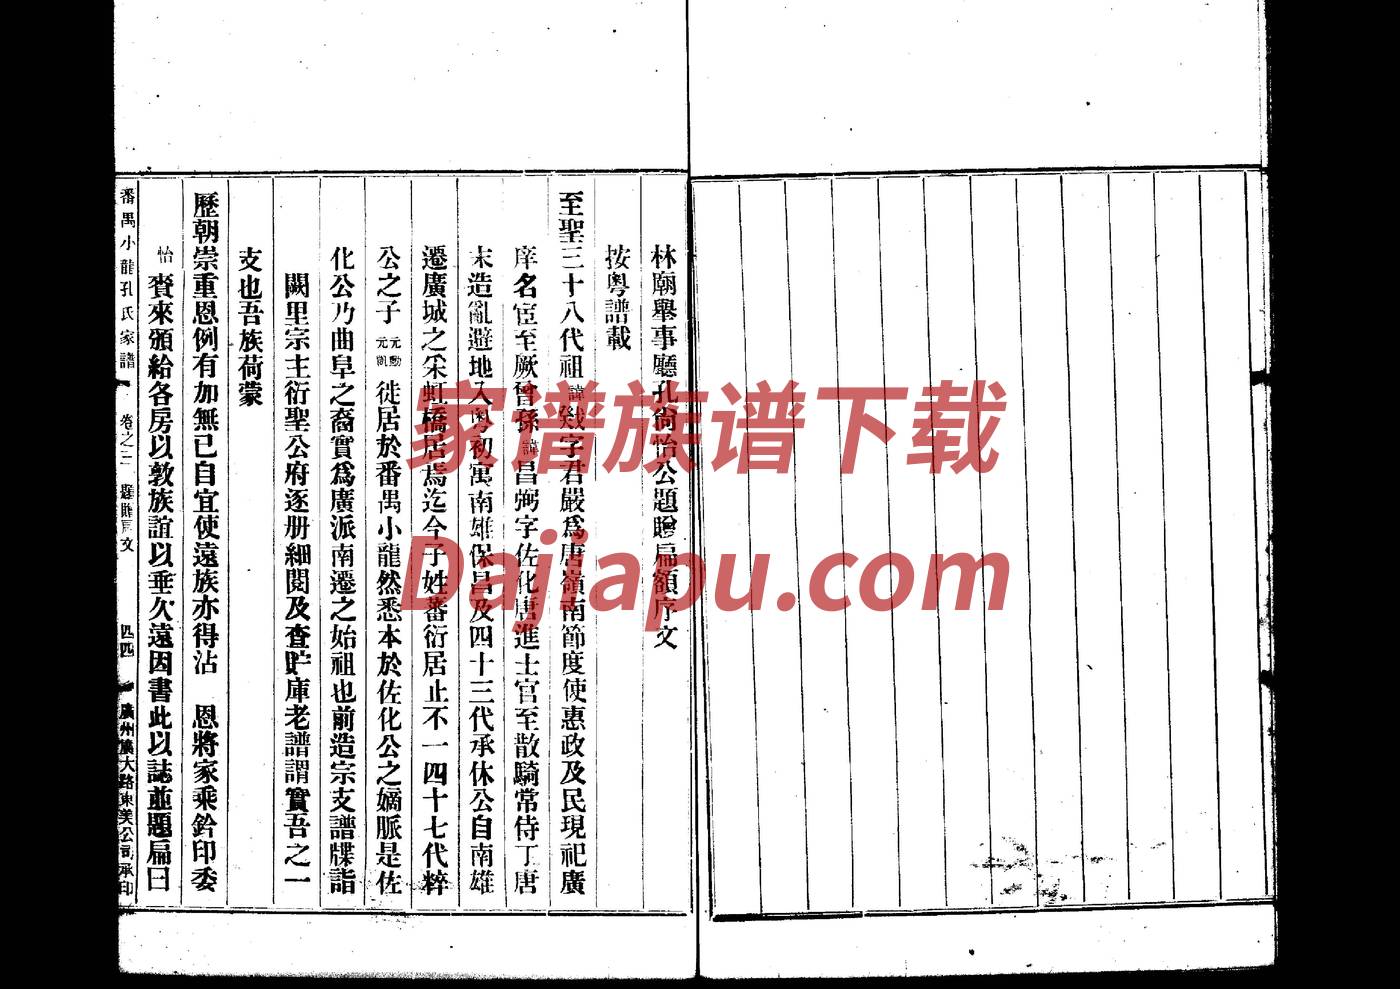 林廟舉事廳孔尙怡公題贈扁額序文
按粵譜載
至聖三十八代祖諱戣字君嚴爲唐嶺南節度使惠政及民現祀廣
庠名宦至厥曾孫諱昌弼字佐化唐進士官至散騎常侍丁唐
末造亂避地入粵初寓南雄保昌及四十三代承休公自南雄
遷廣城之采虹橋居焉迄今子姓蕃衍居止不一四十七代粹
公之子元勳元凱徙居於番禺小龍然悉本於佐化公之嫡脈是佐
化公乃曲阜之裔實爲廣派南遷之始祖也前造宗支譜牒詣
闕里宗主衍聖公府逐册細閱及查貯庫老譜謂實吾之一
支也吾族荷蒙
歷朝崇重恩例有加無已自宜使遠族亦得沾 恩將家乘鈐印委
怡賫來頒給各房以敦族誼以垂久遠因書此以誌並題扁曰
番禺小龍孔氏家譜 卷之二 題贈扁文 四四 廣州廣大路東美公司承印
家谱族谱下载
Dajiapu.com